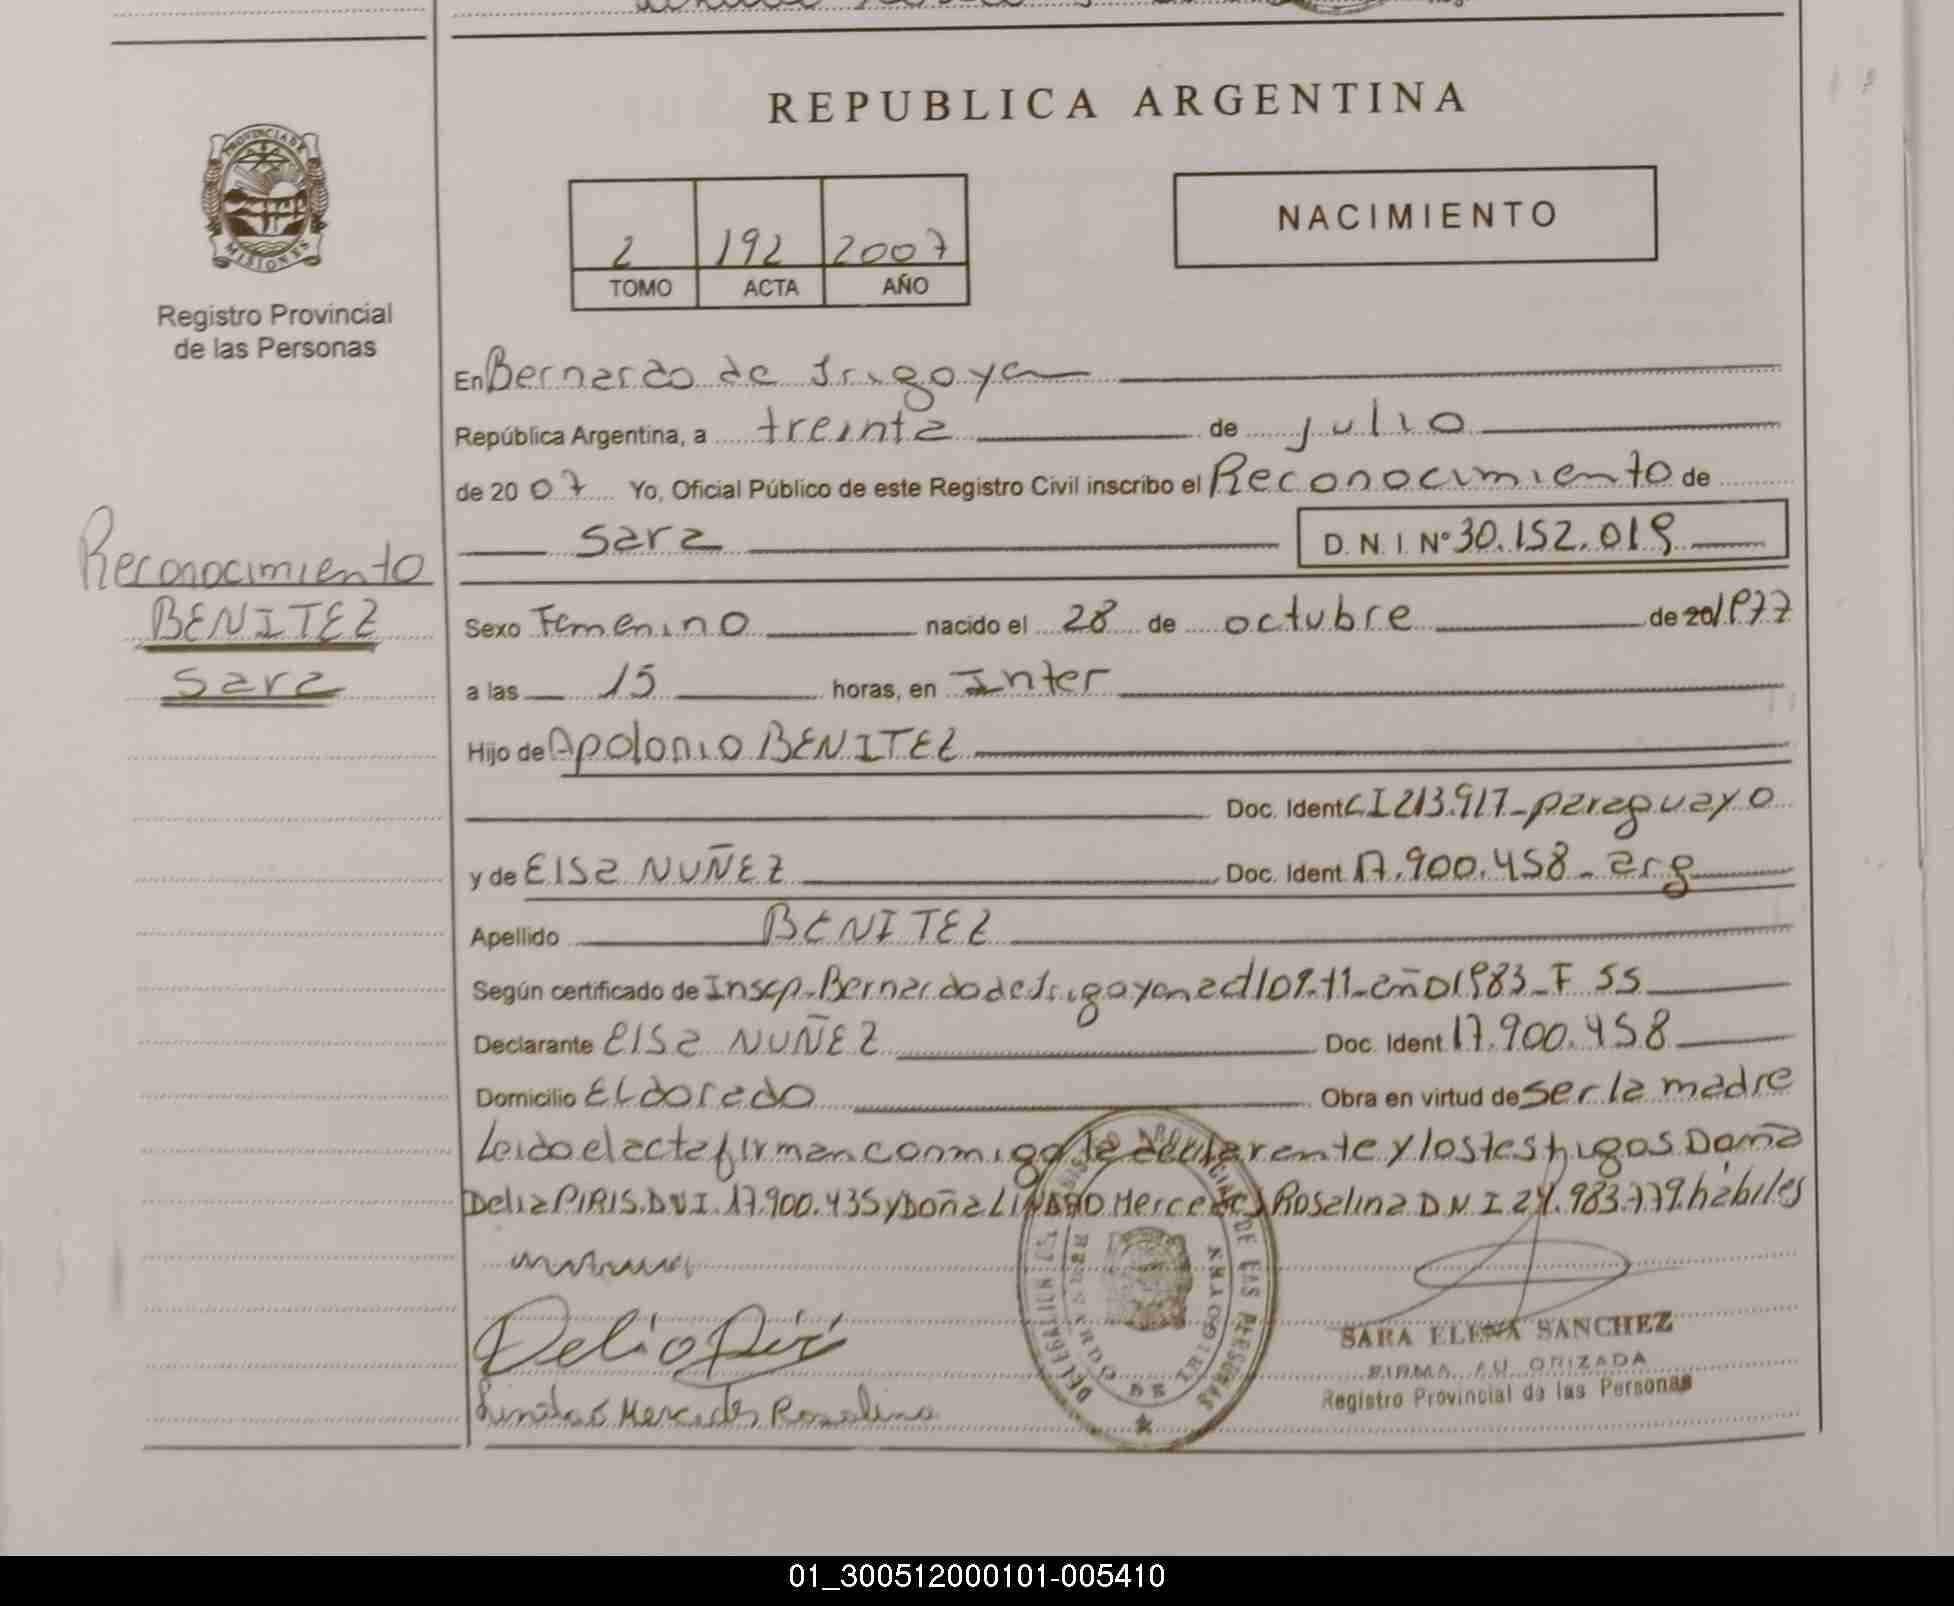 REPUBLICA ARGENTINA
PROVINCIA DE
MISIONES
Registro Provincial
de las Personas
2 192 2007
TOMO ACTA AÑO
NACIMIENTO
En Bernardo de Irigoyen
República Argentina, a treinta de julio
de 2007 Yo, Oficial Público de este Registro Civil inscribo el Reconocimiento de
Sara D.N.I. Nº 30.152.019
Reconocimiento
BENITEZ
Sara
Sexo Femenino nacido el 28 de octubre de 20 1977
a las 15 horas, en Inter
Hijo de Apolonio BENITEZ
Doc. Ident CI 213.917 - paraguayo
y de Elsa NUÑEZ Doc. Ident 17.900.458 - arg
Apellido BENITEZ
Según certificado de Inscp. Bernardo de Irigoyen act 109. año 1983 - F 55
Declarante Elsa NUÑEZ Doc. Ident 17.900.458
Domicilio ELdorado Obra en virtud de ser la madre
Leido el acta firman conmigo la declarante y los testigos Doña
Delia PIRIS. D.N.I. 17.900.435 y Doña Mercedes Rosalina D.N.I 24.983.779. hábiles
Mercedes Rosalina
DELEGACION
BERNARDO DE IRIGOYEN
DE LAS PERSONAS
SARA ELENA SANCHEZ
FIRMA AUTORIZADA
Registro Provincial de las Personas
01_300512000101-005410